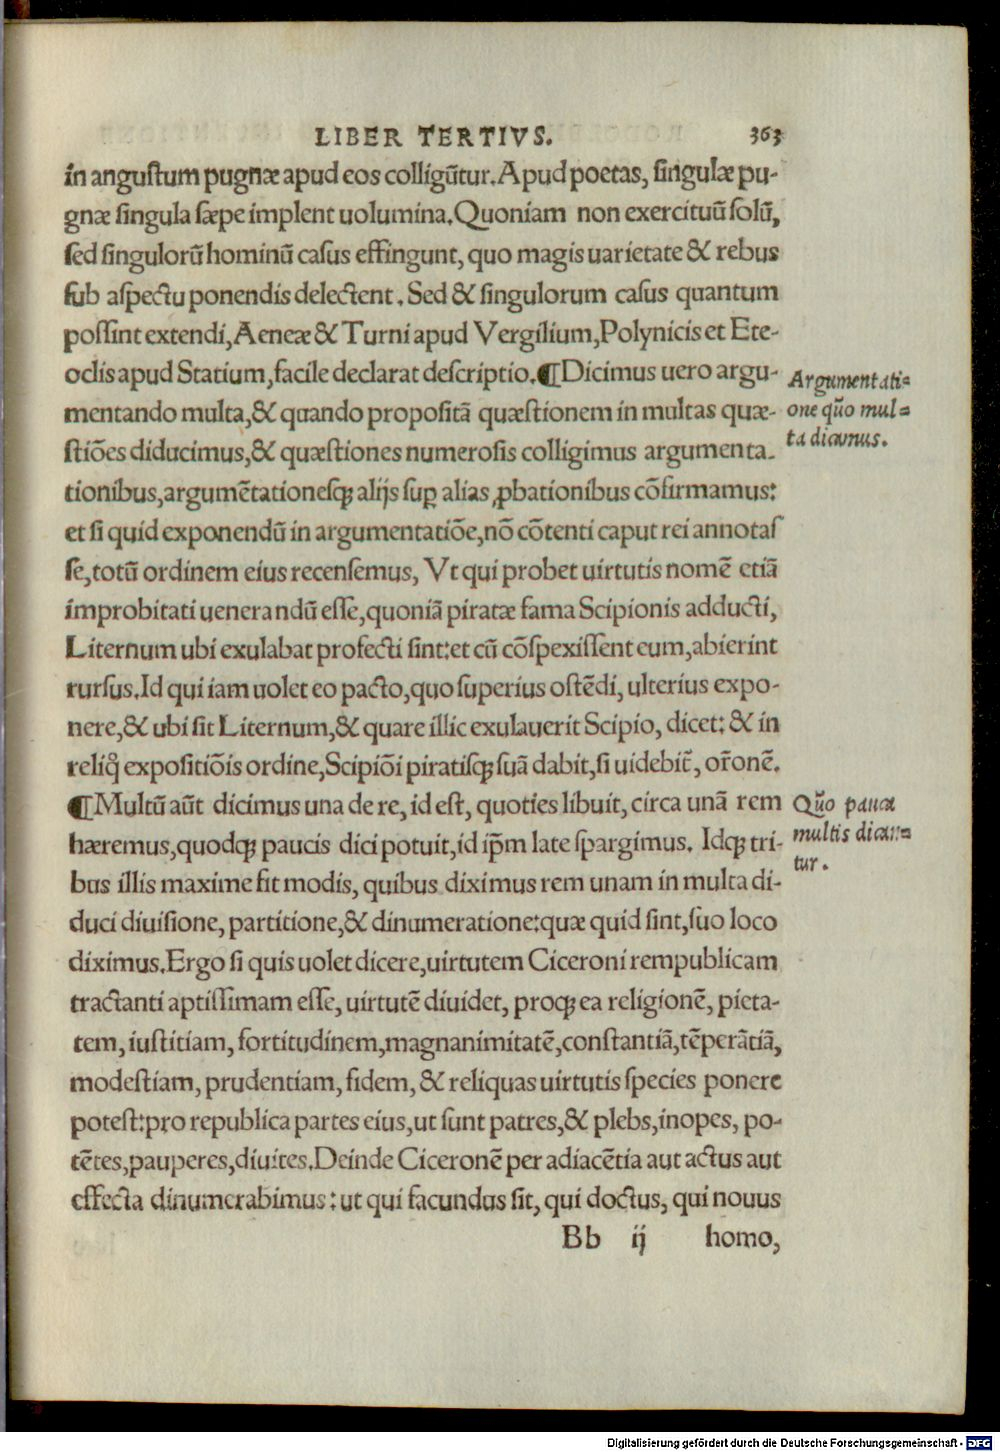 LIBER TERTIVS. 363
in angustum pugnæ apud eos colligūtur. Apud poetas, singulæ pu-
gnæ singula sæpe implent uolumina. Quoniam non exercituū solū,
sed singulorū hominū casus effingunt, quo magis uarietate & rebus
sub aspectu ponendis delectent. Sed & singulorum casus quantum
possint extendi, Aeneæ & Turni apud Vergilium, Polynicis et Ete-
oclis apud Statium, facile declarat descriptio. ¶Dicimus uero argu-
mentando multa, & quando propositā quæstionem in multas quæ-
stiōes diducimus, & quæstiones numerosis colligimus argumenta-
tionibus, argumētationesqꝫ alijs suꝑ alias ꝓbationibus cōfirmamus:
et si quid exponendū in argumentatiōe, nō cōtenti caput rei annotas
se, totū ordinem eius recensemus, Vt qui probet uirtutis nomē etiā
improbitati uenerandū esse, quoniā piratæ fama Scipionis adducti,
Liternum ubi exulabat profecti sint: et cū cōspexissent eum, abierint
rursus. Id qui iam uolet eo pacto, quo superius ostēdi, ulterius expo-
nere, & ubi sit Liternum, & quare illic exulauerit Scipio, dicet: & in
reliq̄ expositiōis ordine, Scipiōi piratisqꝫ suā dabit, si uidebit̃, or̄onē.
¶Multū aūt dicimus una de re, id est, quoties libuit, circa unā rem
hæremus, quodqꝫ paucis dici potuit, id ip̄m late spargimus. Idqꝫ tri-
bus illis maxime fit modis, quibus diximus rem unam in multa di-
duci diuisione, partitione, & dinumeratione: quæ quid sint, suo loco
diximus. Ergo si quis uolet dicere, uirtutem Ciceroni rempublicam
tractanti aptissimam esse, uirtutē diuidet, proqꝫ ea religionē, pieta-
tem, iustitiam, fortitudinem, magnanimitatē, constantiā, tēperātiā,
modestiam, prudentiam, fidem, & reliquas uirtutis species ponere
potest: pro republica partes eius, ut sunt patres, & plebs, inopes, po-
tētes, pauperes, diuites. Deinde Ciceronē per adiacētia aut actus aut
effecta dinumerabimus: ut qui facundus sit, qui doctus, qui nouus
Bb ij homo,
Argumentati=
one quo mul=
ta dicimus.
Quo pauca
multis dican=
tur.
Digitalisierung gefördert durch die Deutsche Forschungsgemeinschaft - DFG